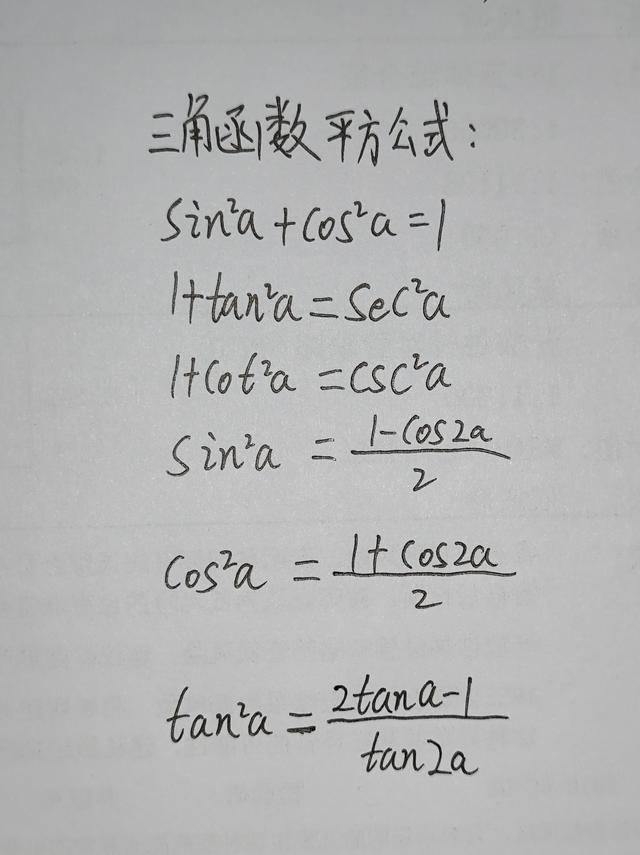 三角函数平方公式:
sin²a+cos²a=1
1+tan²a=sec²a
1+cot²a=csc²a
sin²a = (1-cos2a)/2
cos²a = (1+cos2a)/2
tan²a = (2tana-1)/tan2a